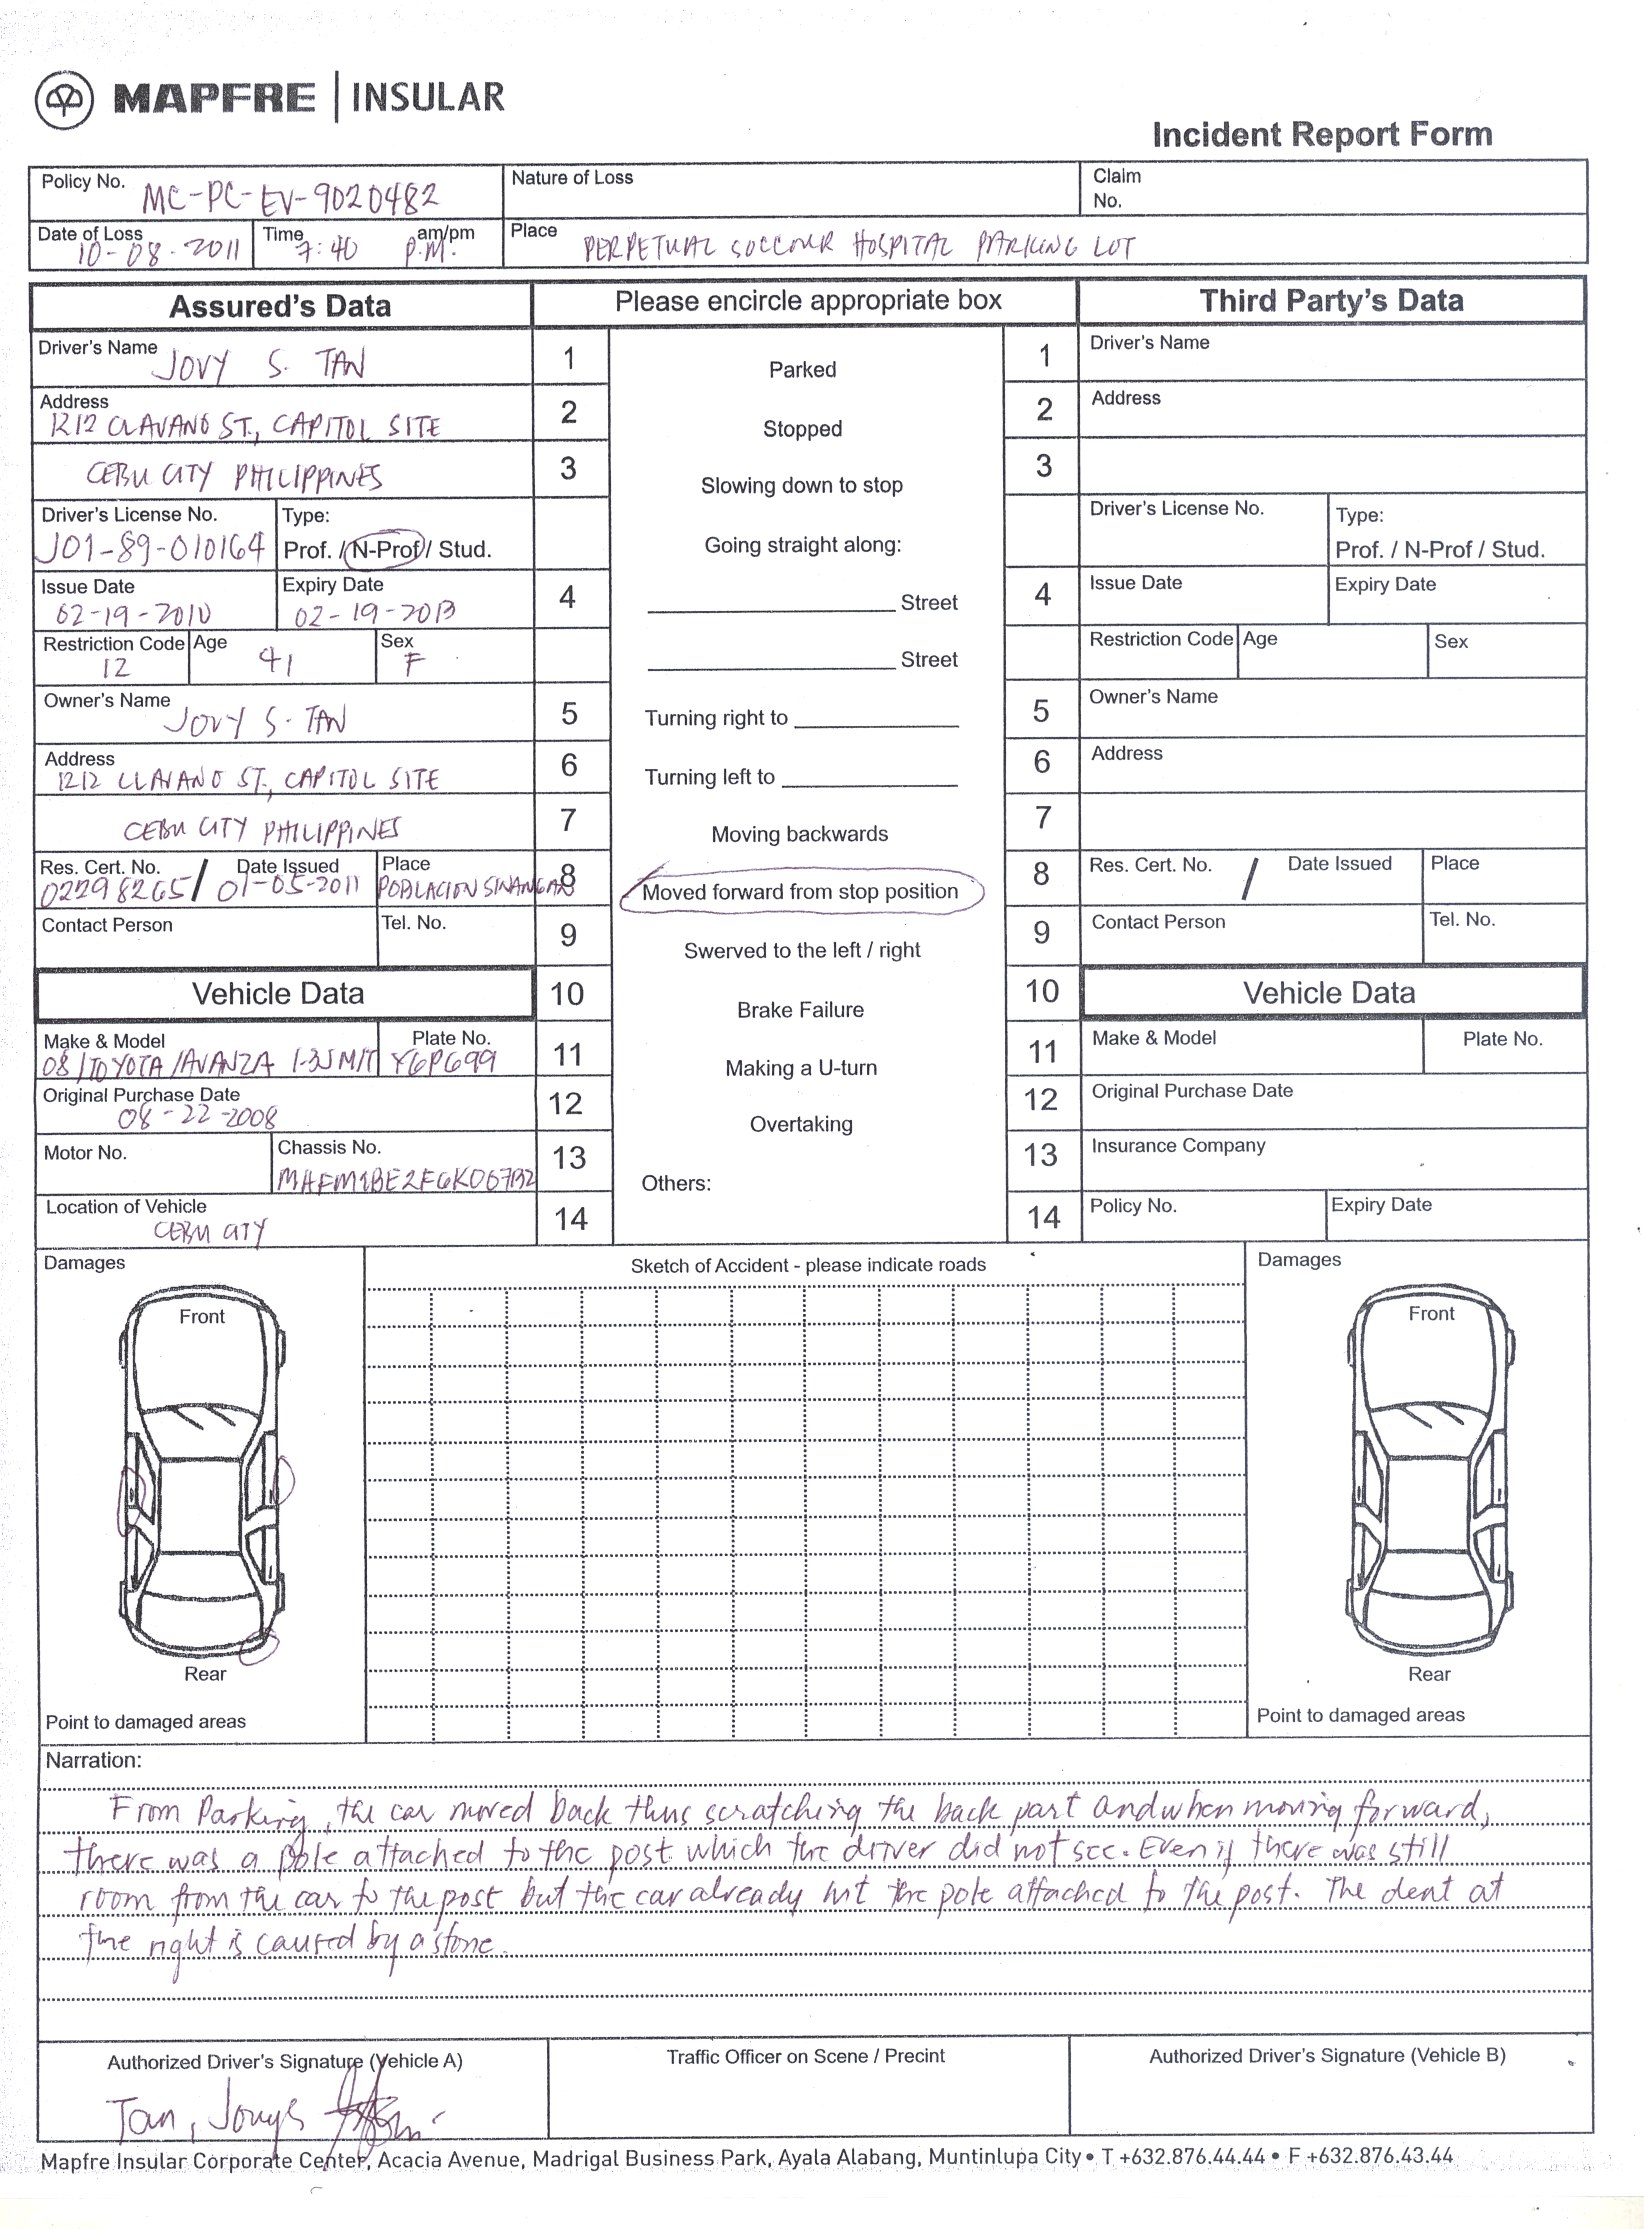 MAPFRE | INSULAR
Incident Report Form
Policy No. MC-PC-EV-9020482
Nature of Loss
Claim No.
Date of Loss 10-08-2011
Time 7:40 am/pm P.M.
Place PERPETUAL SOCCOUR HOSPITAL PARKING LOT
Assured's Data
Please encircle appropriate box
Third Party's Data
Driver's Name JOVY S. TAN
Address
1212 CLAVANO ST., CAPITOL SITE
CEBU CITY PHILIPPINES
Driver's License No. J01-89-010164
Type: Prof. / N-Prof / Stud.
Issue Date 02-19-2010
Expiry Date 02-19-2013
Restriction Code 12
Age 41
Sex F
Owner's Name JOVY S. TAN
Address
1212 CLAVANO ST., CAPITOL SITE
CEBU CITY PHILIPPINES
Res. Cert. No. / Date Issued Place
02298265 / 01-05-2011 POBLACION
Contact Person
Tel. No.
Vehicle Data
Make & Model Plate No.
08/TOYOTA/AVANZA 1.3J M/T YGP699
Original Purchase Date
08-22-2008
Motor No.
Chassis No.
Location of Vehicle
CEBU CITY
1
2
3
4
5
6
7
8
9
10
11
12
13
14
Parked
Stopped
Slowing down to stop
Going straight along:
Street
Street
Turning right to
Turning left to
Moving backwards
Moved forward from stop position
Swerved to the left / right
Brake Failure
Making a U-turn
Overtaking
Others:
1
2
3
4
5
6
7
8
9
10
11
12
13
14
Driver's Name
Address
Driver's License No.
Type:
Prof. / N-Prof / Stud.
Issue Date
Expiry Date
Restriction Code
Age
Sex
Owner's Name
Address
Res. Cert. No. / Date Issued
Place
Contact Person
Tel. No.
Vehicle Data
Make & Model
Plate No.
Original Purchase Date
Insurance Company
Policy No.
Expiry Date
Damages
Front
Rear
Point to damaged areas
Sketch of Accident - please indicate roads
Damages
Front
Rear
Point to damaged areas
Narration:
From Parking, the car moved back thus scratching the back part and when moving forward,
there was a pole attached to the post which the driver did not see. Even if there was still
room from the car to the post but the car already hit the pole attached to the post. The dent at
the right is caused by a stone.
Authorized Driver's Signature (Vehicle A)
Tan, Jovy S
Traffic Officer on Scene / Precint
Authorized Driver's Signature (Vehicle B)
Mapfre Insular Corporate Center, Acacia Avenue, Madrigal Business Park, Ayala Alabang, Muntinlupa City • T +632.876.44.44 • F +632.876.43.44